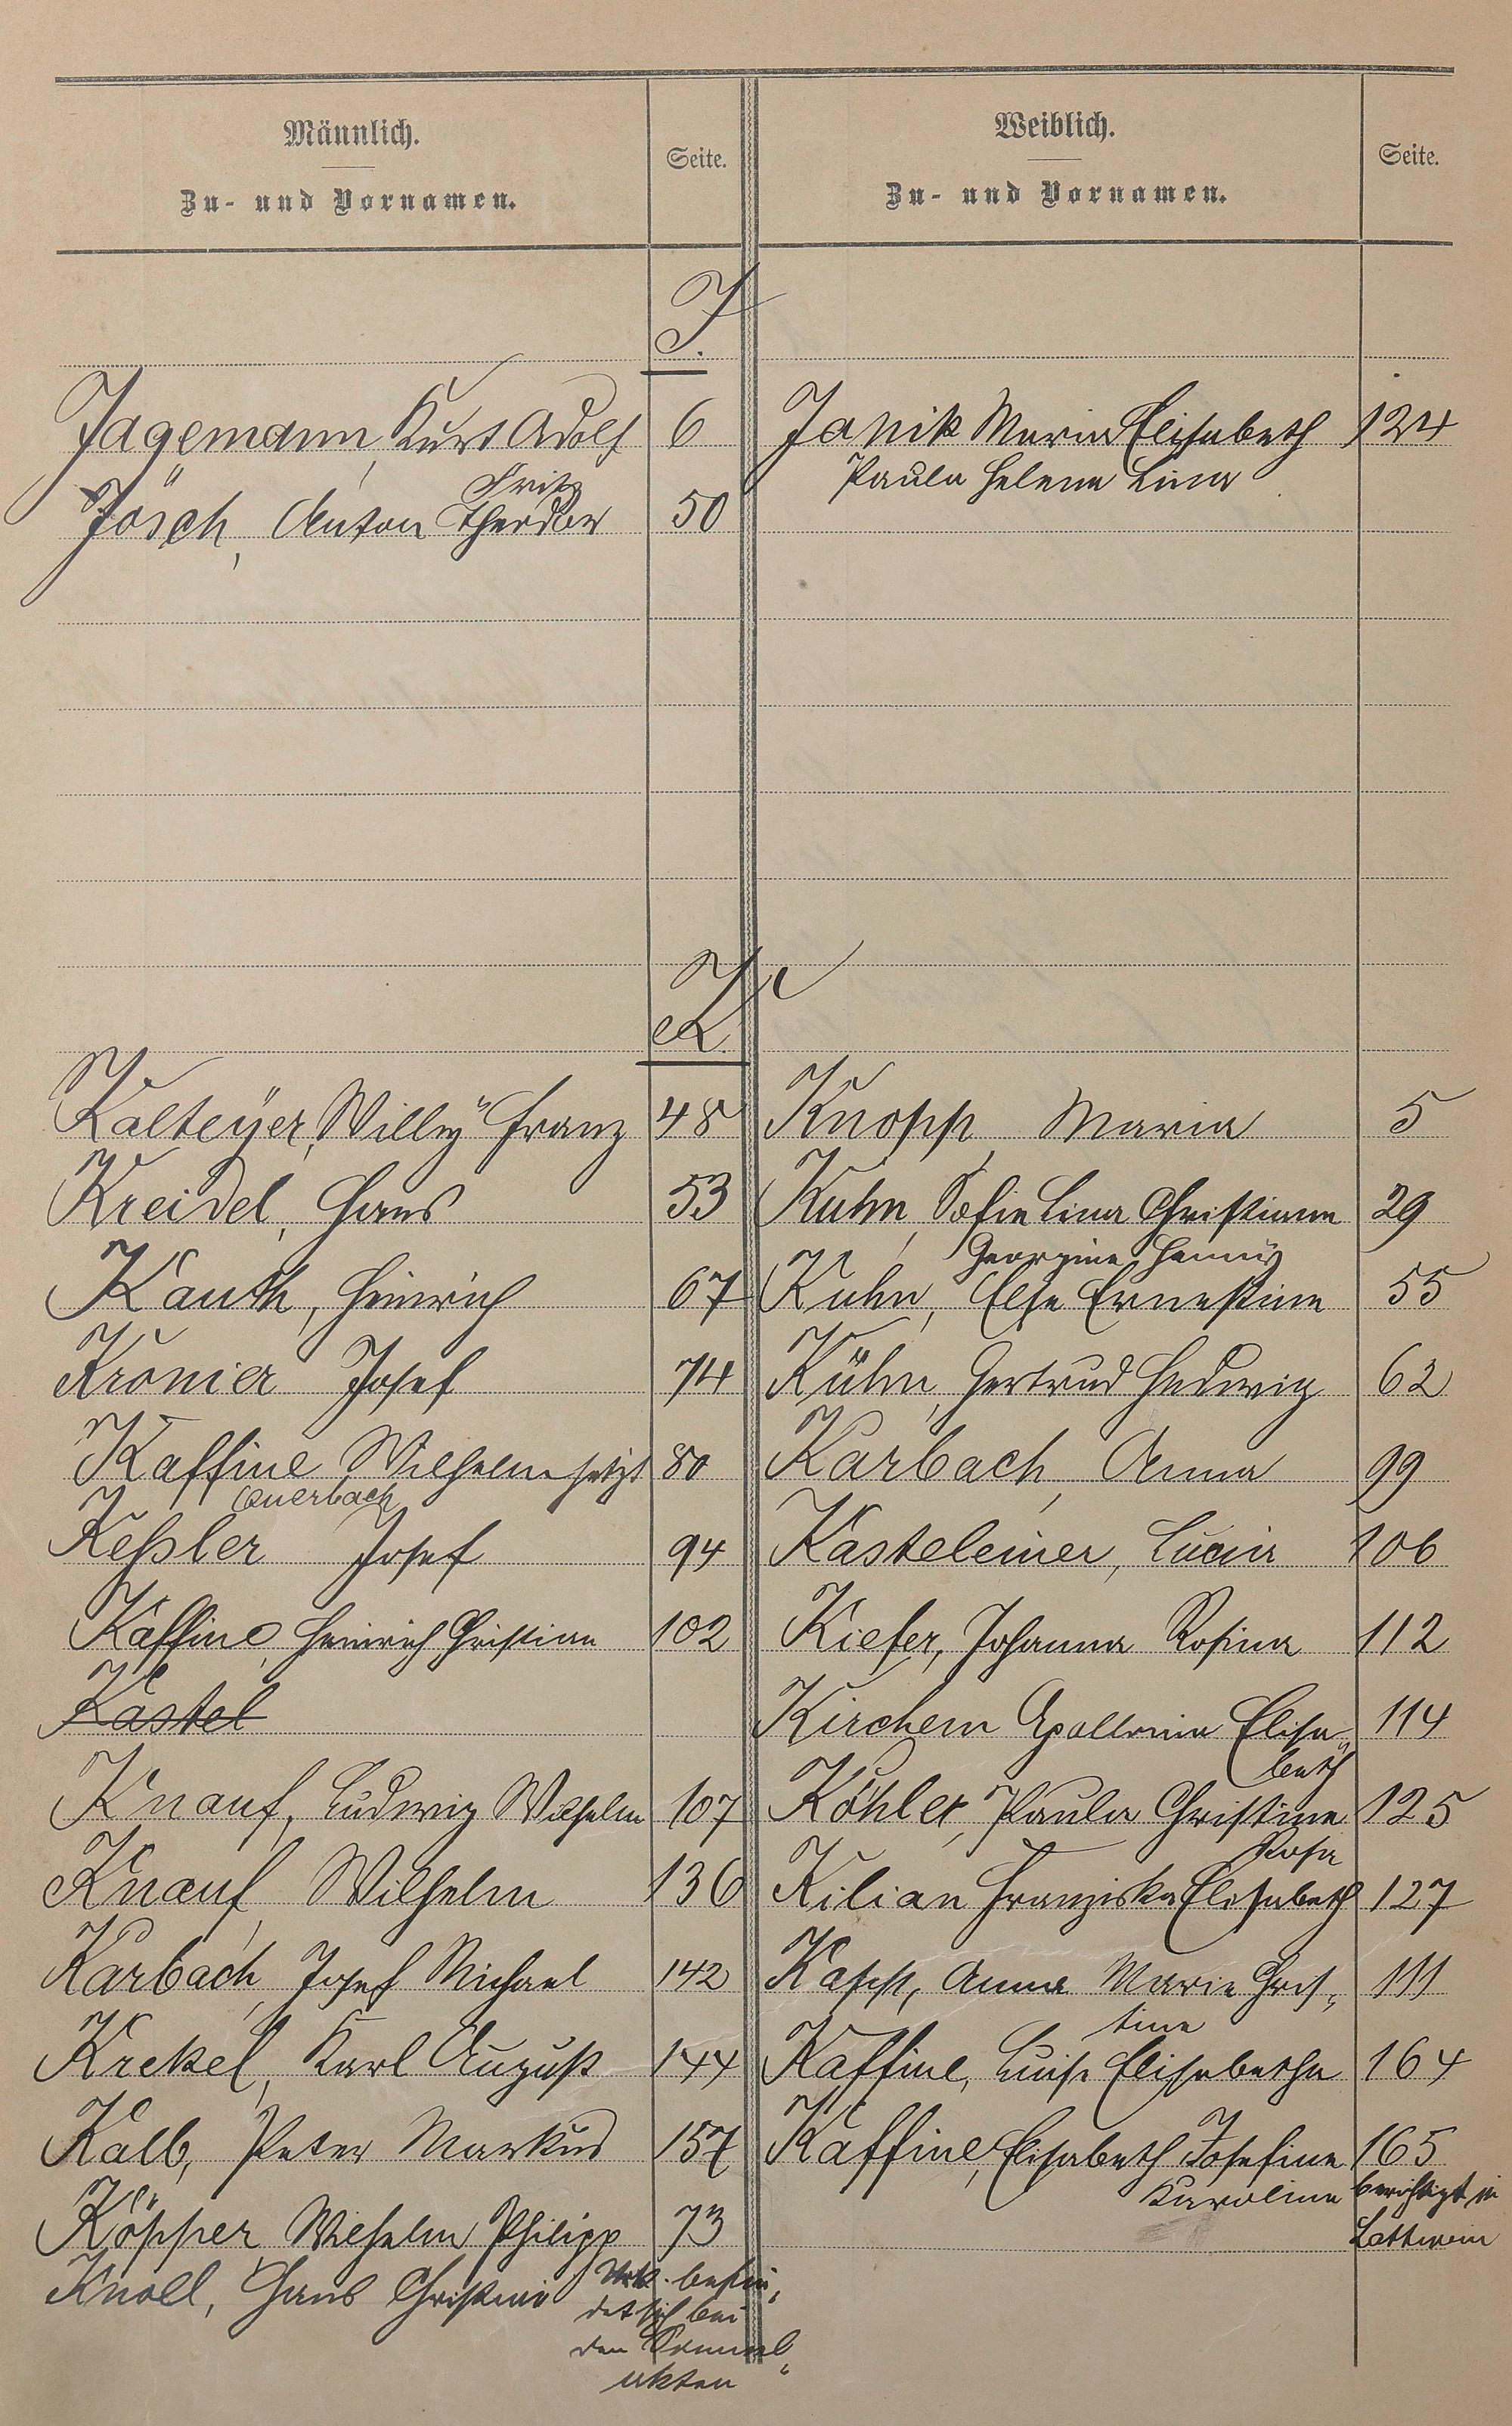 Männlich.
Zu- und Vornamen.
Seite.
Weiblich.
Zu- und Vornamen.
Seite.
J.
Jagemann, Kurt Adolf 6
Fritz
Jösch, Anton Theodor 50
Janik Maria Elisabeth 124
Paula Helene Lina
K.
Kalteyer, Willy Franz 48
Kreidel, Hans 53
Kauth, Heinrich 67
Kronier Josef 74
Kaffine, Wilhelm jetzt 80
Querbach
Keßler Josef 94
Kaffine, Heinrich Christian 102
Kastel
Knauf, Ludwig Wilhelm 107
Knauf, Wilhelm 136
Karbach, Josef Michael 142
Krekel, Karl August 144
Kalb, Peter Markus 157
Köpper Wilhelm Philipp 73
Knoll, Hans Christian
Urk. befin-
det sich bei
den Sammel-
akten
Knopp, Maria 5
Kuhn, Sofie Lina Christiane 29
Georgine Henny
Kuhn, Else Ernestine 55
Kühn, Gertrud Hedwig 62
Karbach, Anna 99
Kasteleiner, Lucia 106
Kiefer, Johanna Rosina 112
Kirchem Apollonia Elisa- 114
beth
Köhler, Paula Christine 125
Rosa
Kilian Franziska Elisabeth 127
Kapp, Anna Maria Chris- 111
tine
Kaffine, Luise Elisabetha 164
Kaffine, Elisabeth Josefine 165
Karoline berichtigt in
Lattwein